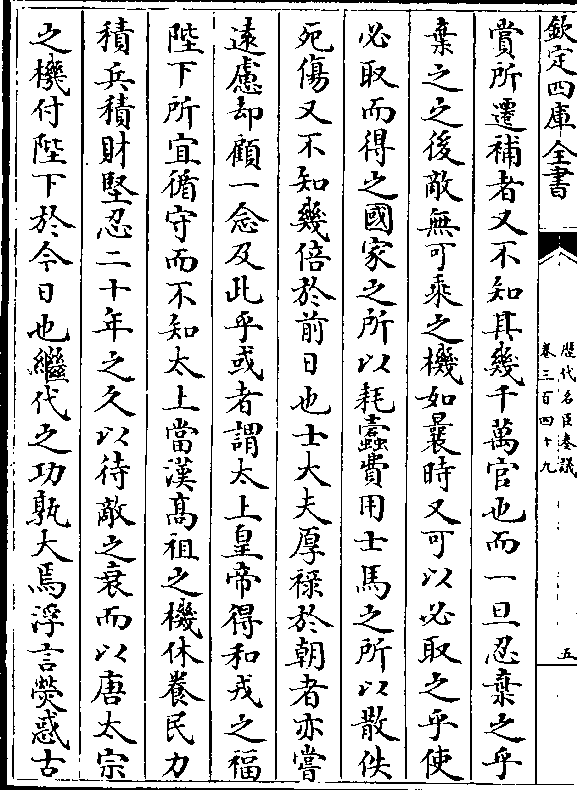 欽定四庫全書
歷代名臣奏議
卷三百四十九
五
賞所遷補者又不知其幾千萬官也而一旦忍棄之乎
棄之之後敵無可乘之機如曩時又可以必取之乎使
必取而得之國家之所以耗蠧費用士馬之所以散佚
死傷又不知幾倍於前日也士大夫厚禄於朝者亦嘗
逺慮却顧一念及此乎或者謂太上皇帝得和戎之福
陛下所宜循守而不知太上當漢髙祖之機休養民力
積兵積財堅忍二十年之久以待敵之衰而以唐太宗
之機付陛下於今日也繼代之功孰大焉浮言熒惑古